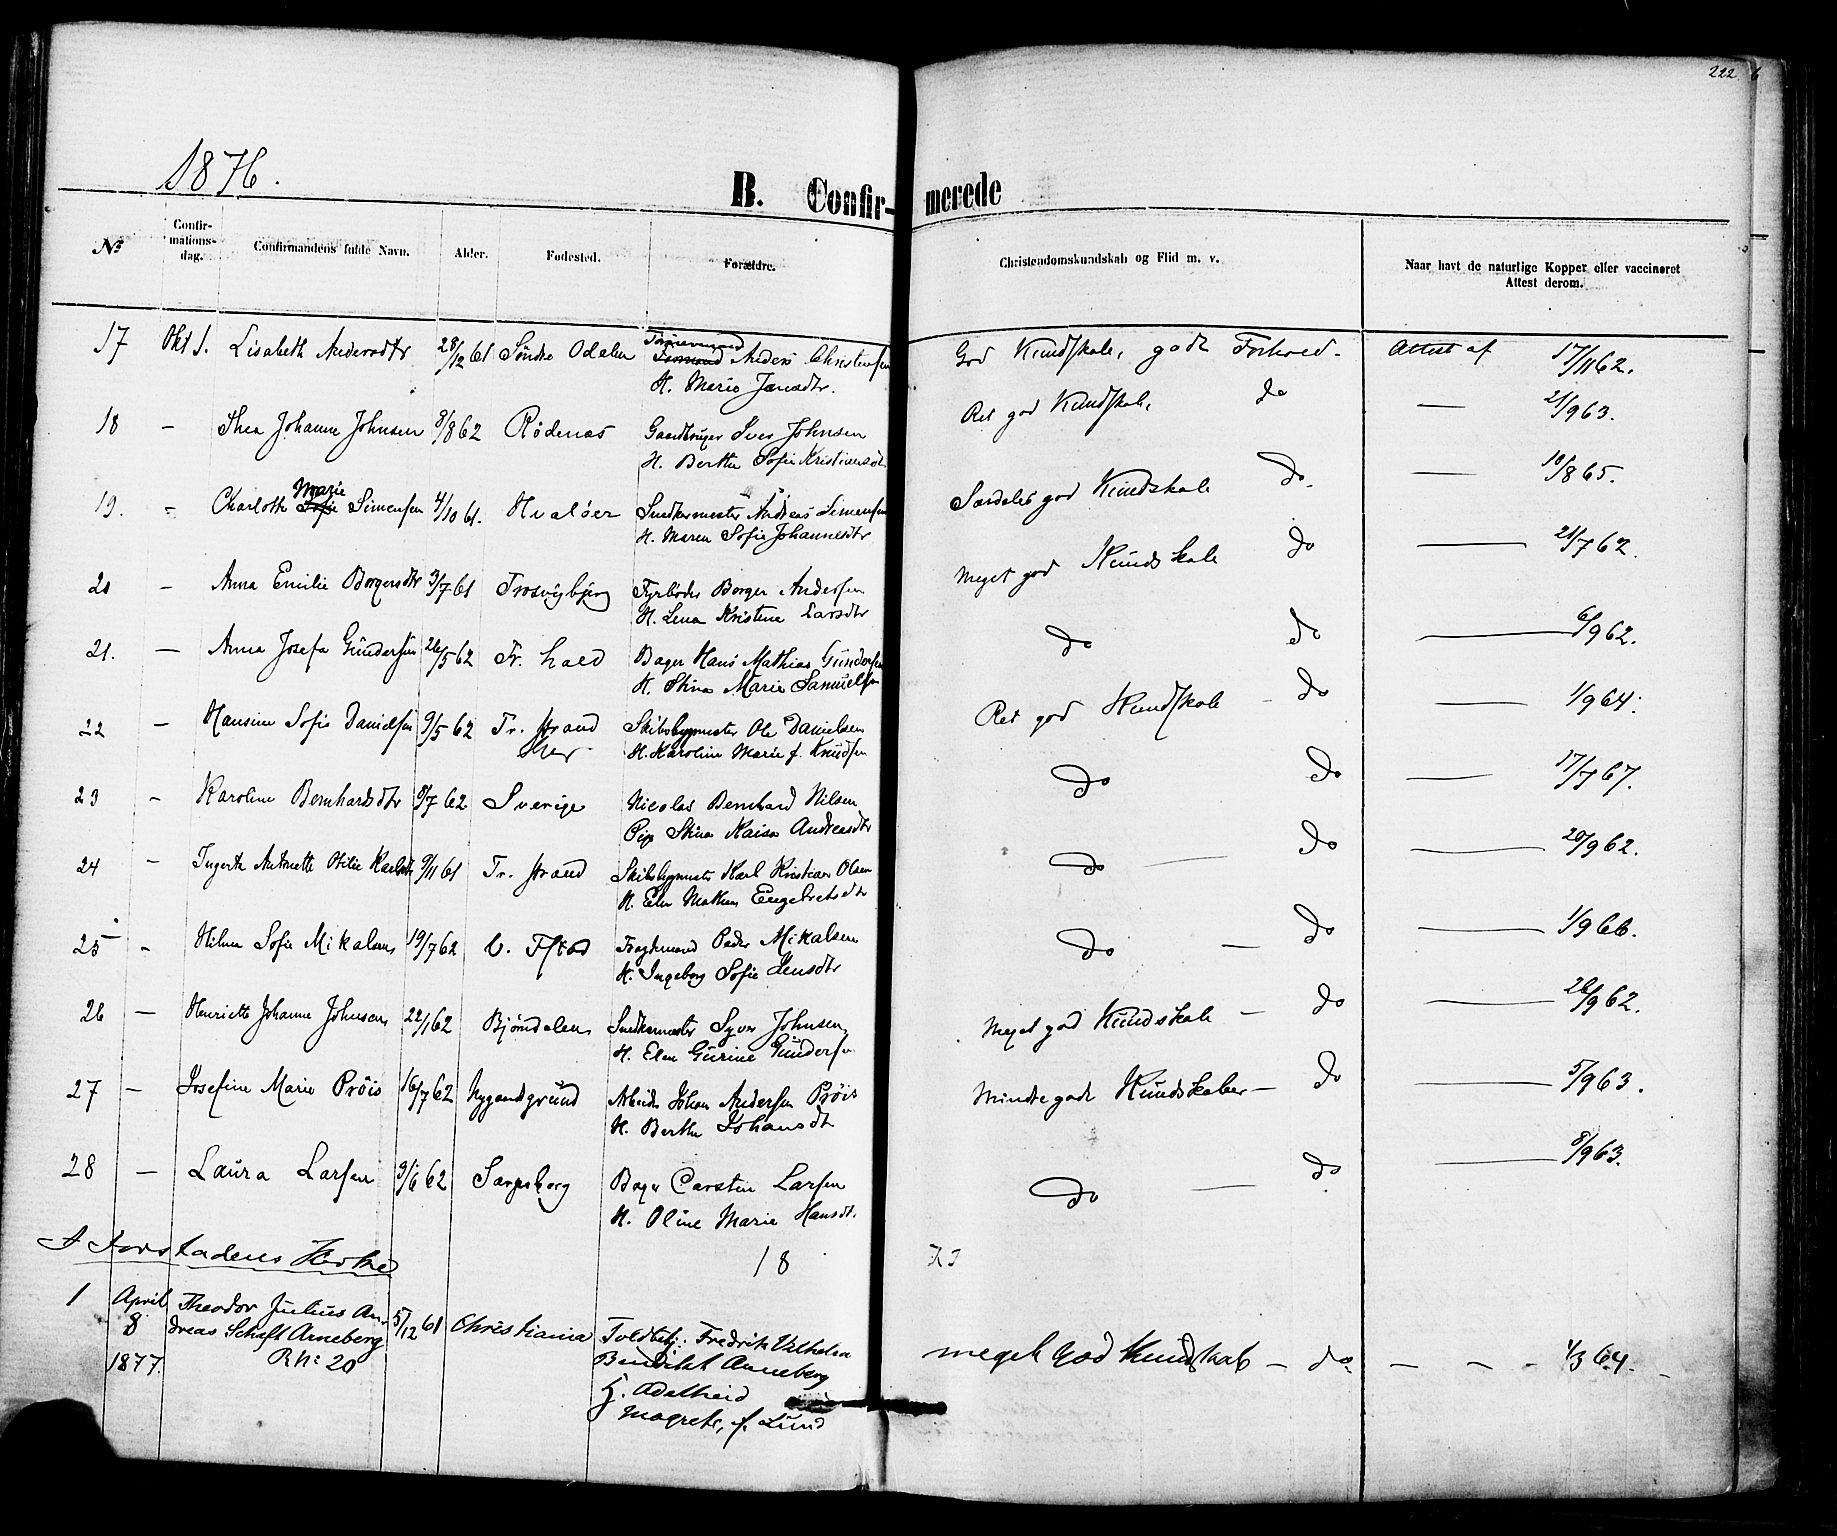 222 6
1876.
B. Confir- merede
No
Confir-
mations-
dag.
Confirmandens fulde Navn.
Alder.
Fødested.
Forældre.
Christendomskundskab og Flid m. v.
Naar havt de naturlige Kopper eller vaccineret
Attest derom.
17 Okt 1. Lisabeth Andersdtr 28/12 61 Søndre Odalen Anders Christensen God Kundskab, godt Forhold. Attest af 17/11 62.
H. Marie Jensdtr.
18 — Thea Johanne Johnsen 8/8 62 Rødenæs Gaardbruger Iver Johnsen Ret god Kundskab, do — 21/9 63.
H. Berthe Sofie Kristiansdtr
Marie
19. — Charlotte Sofie Simensen 4/10 61. Hvaløer Snedkermester Andreas Simensen Særdeles god Kundskab do. — 10/8 65.
H. Maren Sofie Johannesdtr
20 — Anna Emilie Borgersdtr 3/7 61 Trosvigbjerg Fyrbøder Borger Andersen Meget god Kundskab do — 21/7 62.
H. Lena Kristine Larsdtr
21. — Anna Josefa Gundersen 26/5 62 Fr. hald Bager Hans Mathias Gundersen do do — 6/9 62.
H. Stina Marie Samuelsen
22 — Hansine Sofie Danielsen 9/5 62 Fr. strand Skibsbygmester Ole Danielsen Ret god Kundskab — do — 1/9 64.
H. Karoline Marie f. Knudsen
23 — Karoline Bernhardsdtr 8/7 62 Sverige Nicolai Bernhard Nilsen do do — 17/7 67.
Pige Stina Kaisa Andreasdtr
24 — Antonette Otilie Karlsdtr 9/11 61 Fr. strand Skibsbygmester Karl Kristian Olsen do — do — 20/9 62.
H. Elen Mathea Engebretsdtr
25 — Hilma Sofie Mikalsen 19/7 62 V. Fstad Fragtemand Peder Mikalsen do — do — 1/9 66.
H. Ingeborg Sofie Jensdtr
26 — Henriette Johanne Johnsen 22/1 62 Bjørndalen Snedkermester Syver Johnsen Meget god Kundskab — do — 26/9 62.
H. Elen Gurine Gundersen
27 — Josefine Marie Prøis 16/7 62 Nygaardsgrund Arbeider Johan Andersen Prøis Mindre gode Kundskaber — do — 5/9 63.
H. Berthe Johansdt
28 — Laura Larsen 9/6 62 Sarpsborg Bager Carsten Larsen do — do — 8/9 63.
H. Oline Marie Hansdt.
18
I Forstadens Kirke
1 April Theodor Julius An- 5/12 61 Christiania Toldbetj: Fredrik Vilhelm meget god Kundskab — do. — — — 1/3 64.
8 dreas Schaft Arneberg Benedikt Arneberg
1877. R No 20 H. Adelheid
Magrete, f. Lund